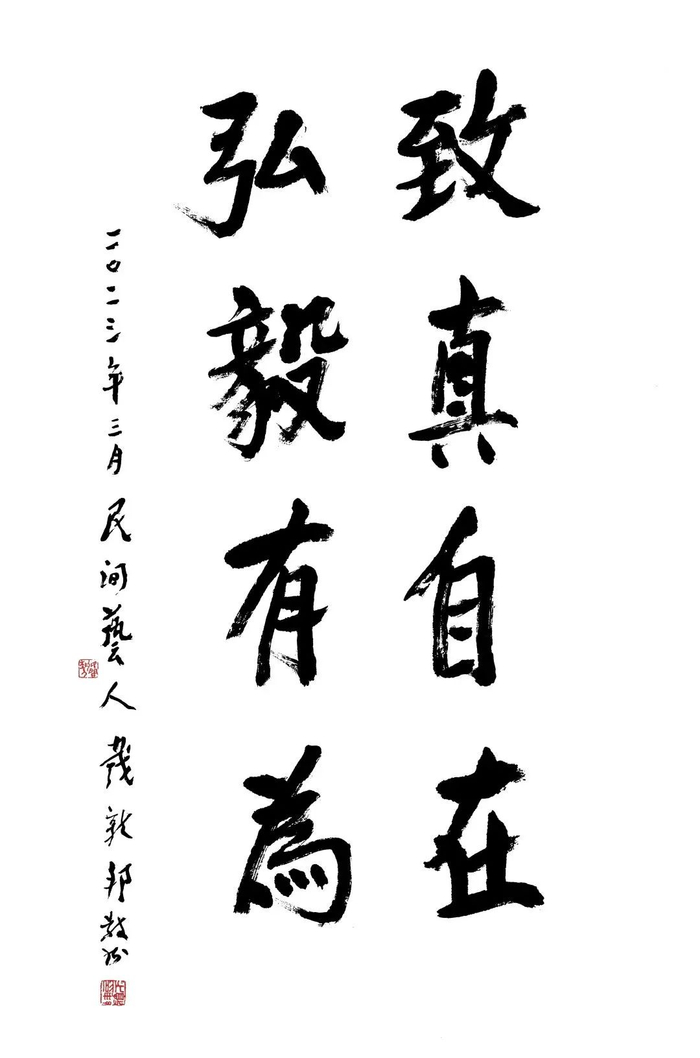 致真自在
弘毅有為
二〇二三年三月民间藝人戴敦邦